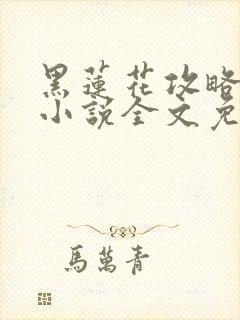 黑蓮花攻略
小說全文免
馬萬青